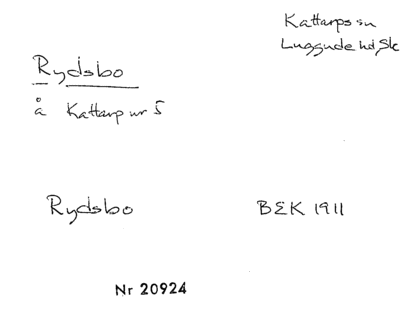 Kattarps sn
Luggude hd Sk
Rydsbo
å Kattarp nr 5
Rydsbo BEK 1911
Nr 20924